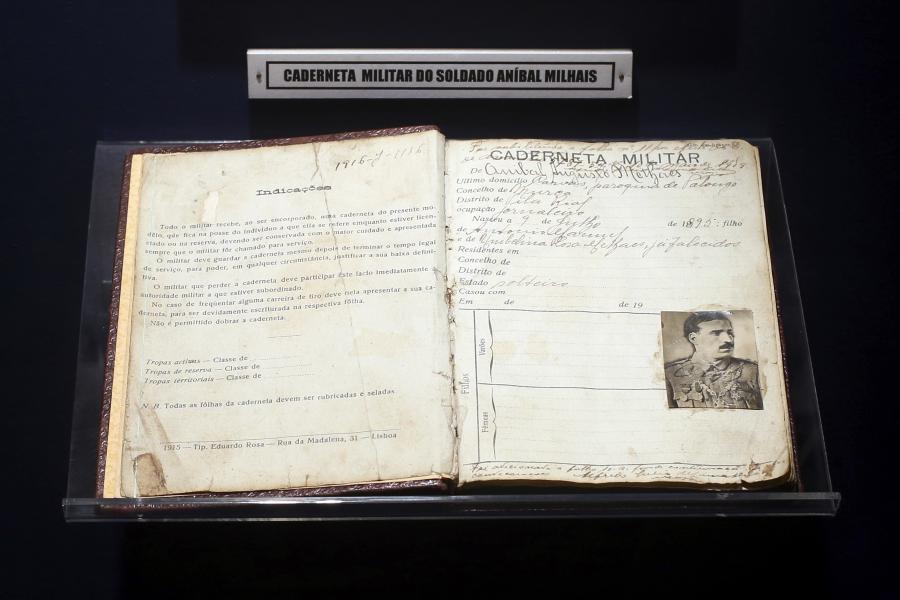 CADERNETA MILITAR DO SOLDADO ANÍBAL MILHAIS
1916-J-1156
Indicações
Todo o militar recebe, ao ser encorporado, uma caderneta do presente mo-
dêlo, que fica na posse do indivíduo a que ela se refere enquanto estiver licen-
ciado ou na reserva, devendo ser conservada com o maior cuidado e apresentada
sempre que o militar fôr chamado para serviço.
O militar deve guardar a caderneta mesmo depois de terminar o tempo legal
de serviço, para poder, em qualquer circunstância, justificar a sua baixa defini-
tiva.
O militar que perder a caderneta deve participar êste facto imediatamente à
autoridade militar a que estiver subordinado.
No caso de freqüentar alguma carreira de tiro deve nela apresentar a sua ca-
derneta, para ser devidamente escriturada na respectiva fôlha.
Não é permitido dobrar a caderneta.
Tropas activas — Classe de
Tropas de reserva — Classe de
Tropas territoriais — Classe de
N. B. Todas as fôlhas da caderneta devem ser rubricadas e seladas
1915 — Tip. Eduardo Rosa — Rua da Madalena, 31 — Lisboa
CADERNETA MILITAR
De Anibal Augusto Milhaes
Último domicílio paroquia de
Concelho de Murça
Distrito de Vila Real
ocupação jornaleiro
Nasceu a 9 de Julho de 1895: filho
de Antonio
e de Rosa Milhaes, já falecidos
Residentes em
Concelho de
Distrito de
Estado solteiro
Casou com
Em de de 19
Filhos
Varões
Fêmeas